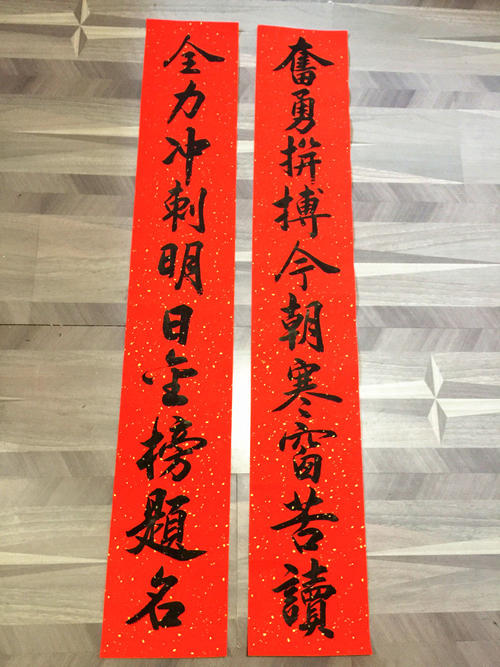 奮勇拚搏今朝寒窗苦讀
全力冲刺明日金榜題名